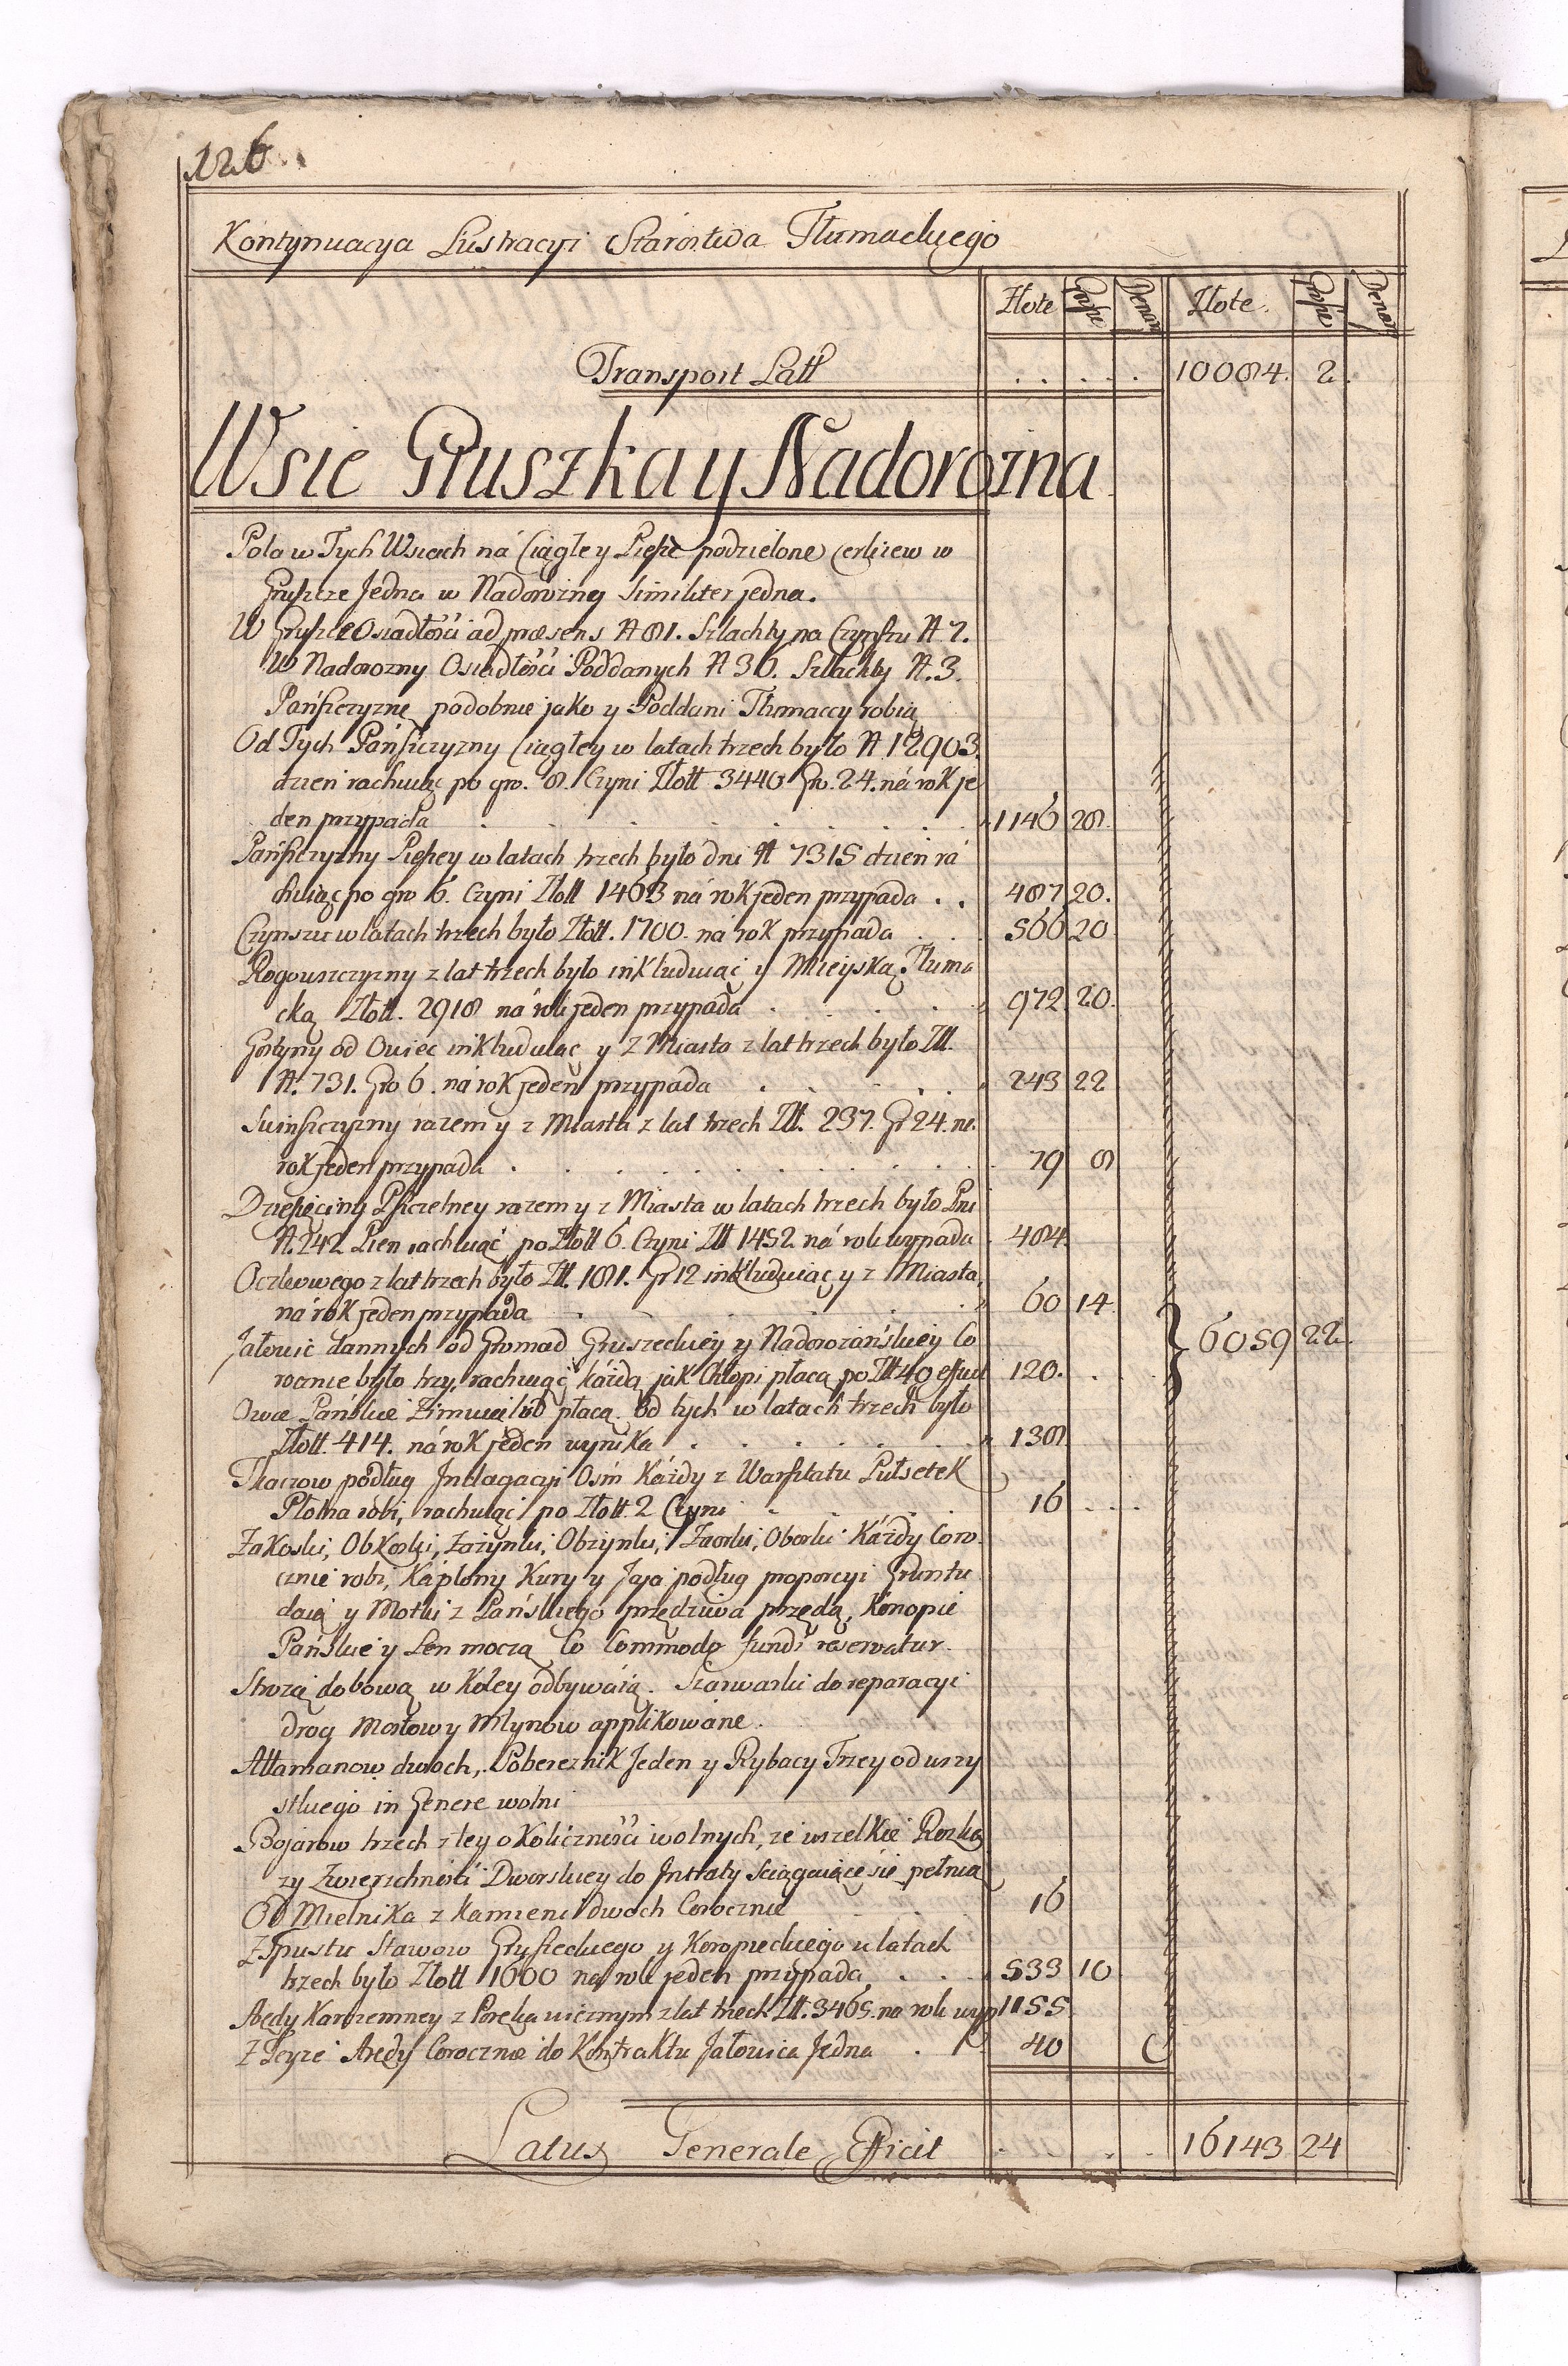 126
Kontynuacya Lustracyi Starostwa Tłumackiego
Złote Grosze Denar Złote. Grosze Denar
Transport Latt . . . . 10084. 2.
Wsie Gruszka y Nadorozna
Pola w Tych Wsiach ná Ciągłe y Piesze podzielone Cerkiew w
Gruszce Jedna w Nadorozney Similiter jedna.
W Gruszce Osiadłości ad præsens N 81. Szlachty na Czynszu N 7.
W Nadorozny Osiadłości Poddanych N 36. Szlachty N. 3.
Pańszczyznę podobnie jako y Poddani Tłumaccy robią
Od Tych Pańszczyzny Ciągłey w latach trzech było N 12903.
dzień rachuiąc po gro. 8. Czyni Złott 3440 Gro. 24. ná rok je
den przypada 1146 28.
Pańszczyzny Pieszey w latach trzech było dni N 7315 dzień rá
chuiąc po gro 6. Czyni Złott 1463 ná rok jeden przypada . . 487 20.
Czynszu w latach trzech było Złott. 1700. ná rok przypada 566 20
Rogowszczyzny z lat trzech było inkluduiąc y Mieyską Tłuma
cką Złott. 2918 ná rok jeden przypada 972. 20.
Gostyny od Owiec inkluduiąc y z Miasta z lat trzech było Złł.
N. 731. Gro 6. ná rok jeden przypada 243 22
Swinszczyzny razem y z Miasta z lat trzech Złł. 237. Gr 24. ná
rok jeden przypada 79 8
Dziesięciny Pszczelney razem y z Miasta w latach trzech było Pni
N. 242 Pień rachuiąc po Złott 6. Czyni Złł 1452 ná rok wypada 484.
Oczkowego z lat trzech było Złł. 181. Gr 12 inkluduiąc y z Miasta,
ná rok jeden przypada 60 14.
Jałowic dannych od Gromad Gruszeckiey y Nadorozańskiey Co 6059 22.
rocznie było trzy, rachuiąc káżdą jak Chłopi płacą po Złł 40 efficit 120.
Owce Pańskie Zimuią lub płacą od tych w latach trzech było
Złott. 414. ná rok jeden wynika 138.
Tkaczow podług Indagacyi Osm Káżdy z Warsztatu Pułsetek
Płotna robi, rachuiąc po Złott. 2 Czyni 16
Zakoski, Obkoski, Zażynki, Obżynki, Zaorki, Oborki Káżdy Coro
cznie robi, Kápłony Kury y Jaja podług proporcyi Gruntu
daią y Motki z Pańskiego przędziwa przędą, Konopie
Pańskie y Len moczą Co Commodo fundi reservatur.
Strożą dobową w Koley odbywáią. Szarwarki do reparacyi
drog Mostow y Młynow applikowáne.
Attamanow dwoch, Pobereznik Jeden y Rybacy Trzey od wszy
stkiego in Genere wolni
Bojarow trzech z tey okoliczności wolnych, że wszelkie Rozka
zy Zwierzchności Dworskiey do Intraty Sciągaiące się pełnią
Od Mielnika z kamieni dwoch Corocznie 16
Z Spustu Stawow Gruszeckiego y Koropieckiego w latach
trzech było Złott 1600 na rok jeden przypada . . . 533 10
Arędy Karczemney z Porękawicznym z lat trzech Złł. 3465. na rok wyp 1155
Z Teyże Arędy Corocznie do Kontraktu Jałowica Jedna . 40
Latus Generale Efficit 16143 24